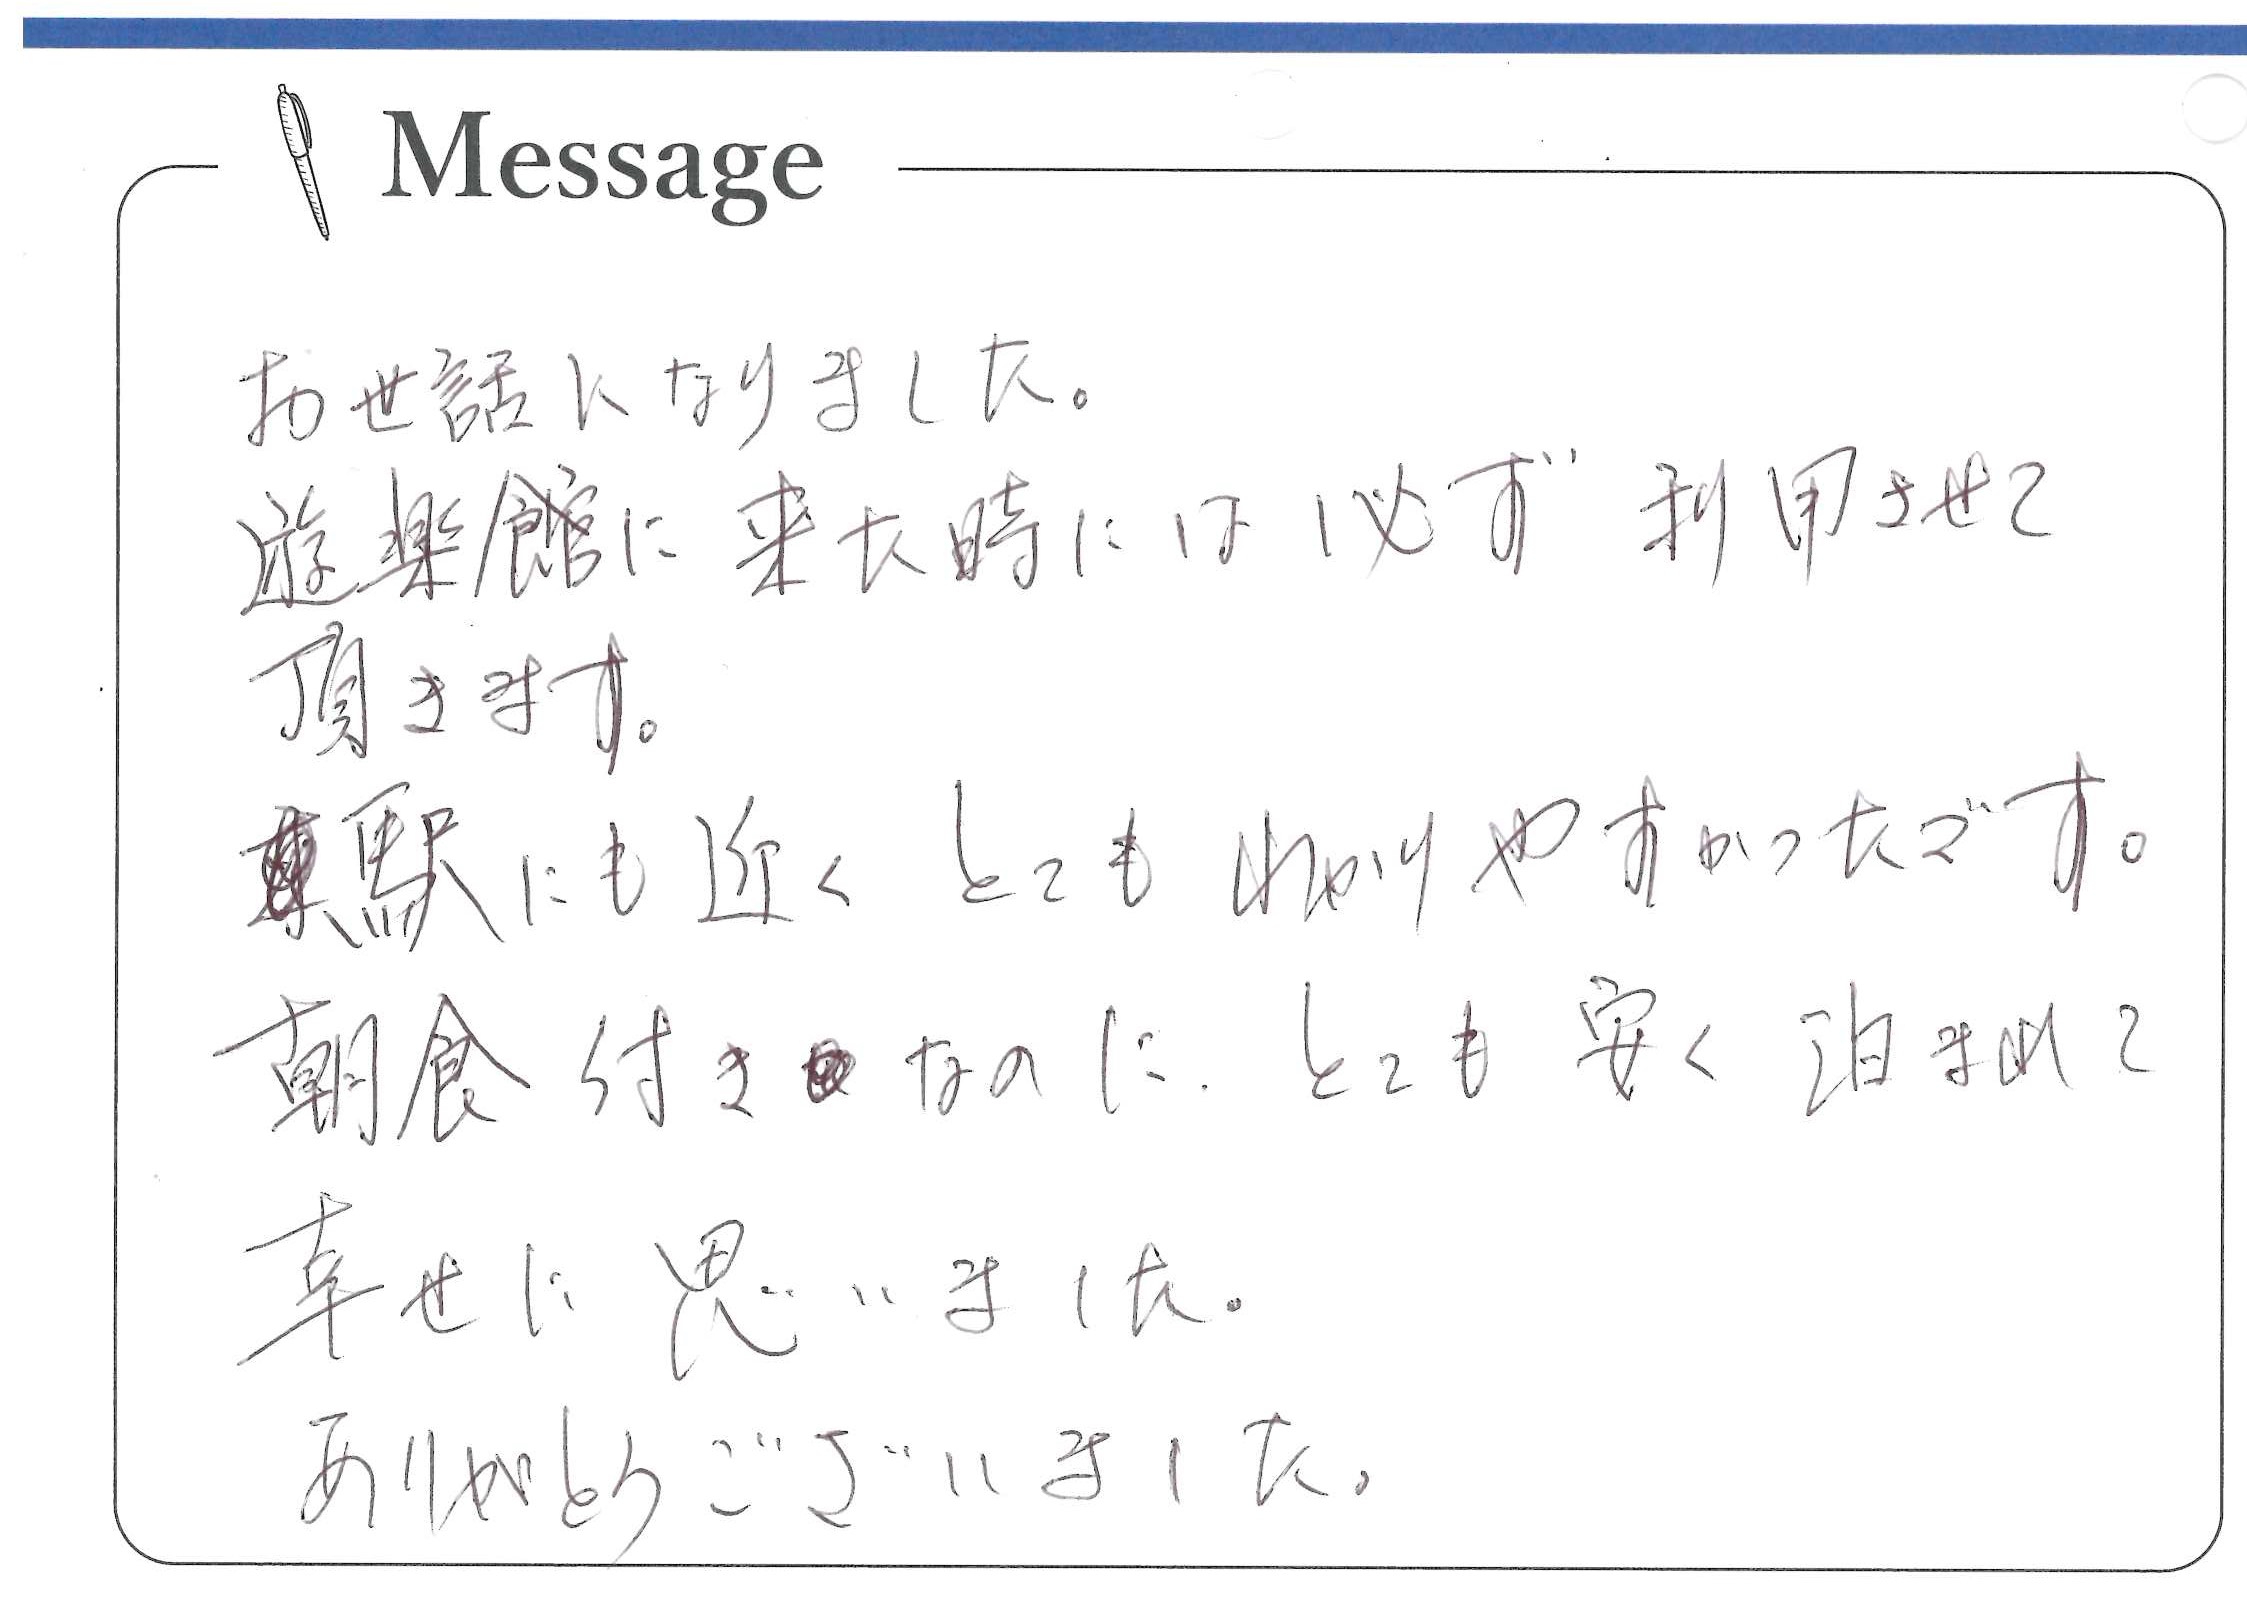 Message
お世話になりました。
遊楽館に来た時には必ず利用させて
頂きます。
駅にも近くとてもわかりやすかったです。
朝食付きなのに.とても安く泊まれて
幸せに思いました。
ありがとうございました。